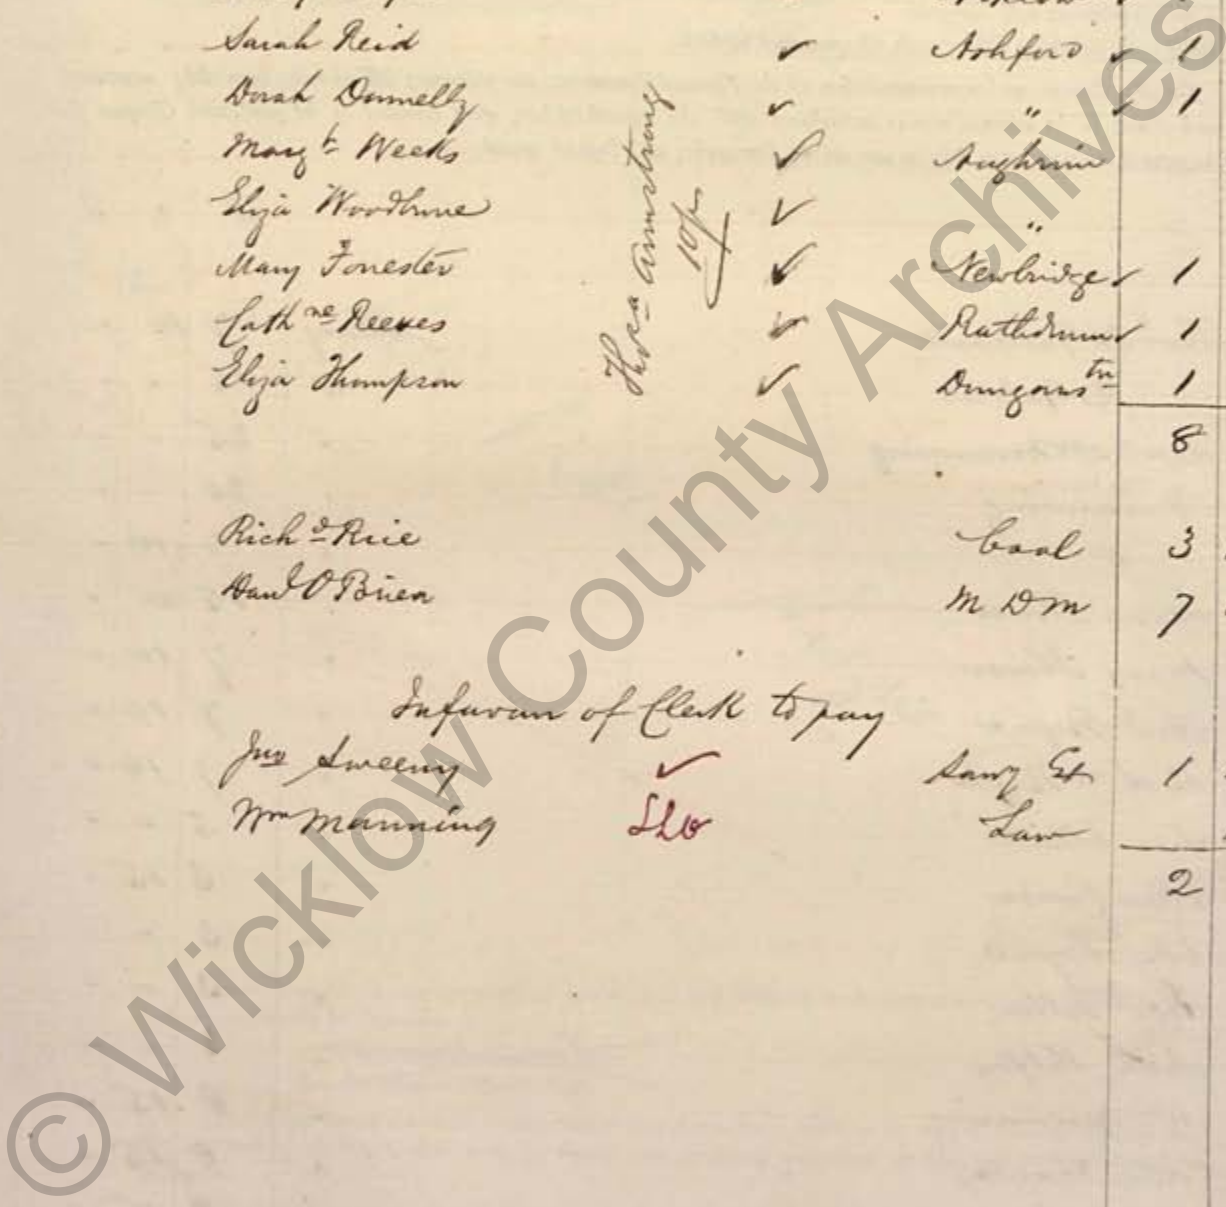 Sarah Reid ✓ Ashford ✓ 1
Dorah Donnelly ✓ " ✓ 1
Margt Weeks ✓ Aughrim
Eliza Woodburne ✓ "
Mary Forrester ✓ Newbridge ✓ 1
Cathne Reeves ✓ Rathdrum ✓ 1
Eliza Thompson ✓ Dunganstn 1
Thos Armstrong
8
Richd Rice Coal 3
Danl O'Brien M D M 7
In favour of Clerk to pay
Jno Sweeny ✓ Sany Ex 1
Wm Manning Law
2
© Wicklow County Archives